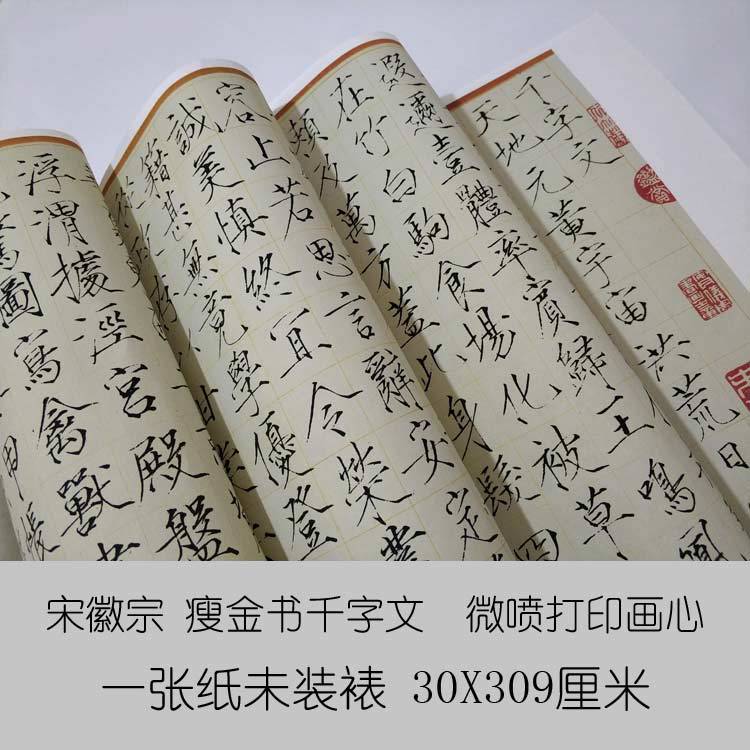 千字文
天地元黃宇宙洪荒日
遐邇壹體率賓歸王鳴鳳
在竹白駒食場化被草
賴及萬方蓋此身髮四
容止若思言辭安定
誠美慎終宜令榮業
籍甚無竟學優登
浮渭據涇宮殿盤
驚圖寫禽獸
甲帳
宋徽宗 瘦金书千字文 微喷打印画心
一张纸未装裱 30X309厘米